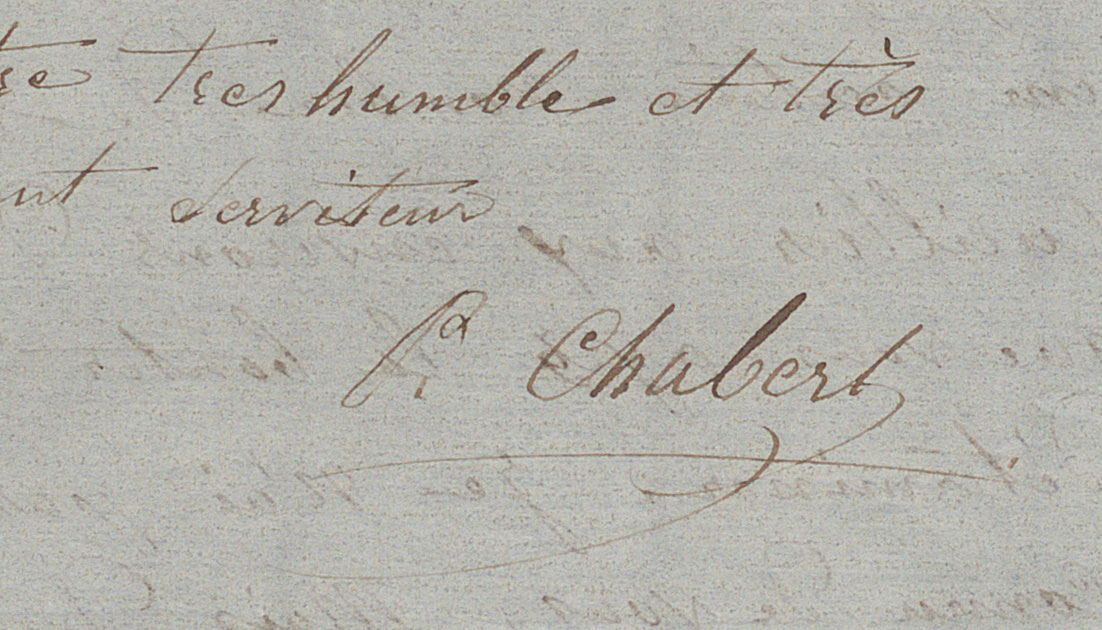 tre tres humble et très
nt serviteur
P. Chabert